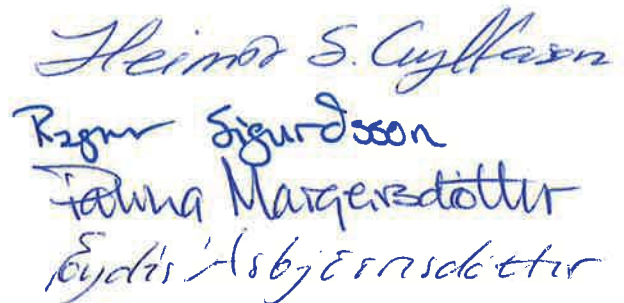 Heimir S. Gylfason
Ragnar Sigurðsson
Pálína Margeirsdóttir
Eydís Ásbjörnsdóttir